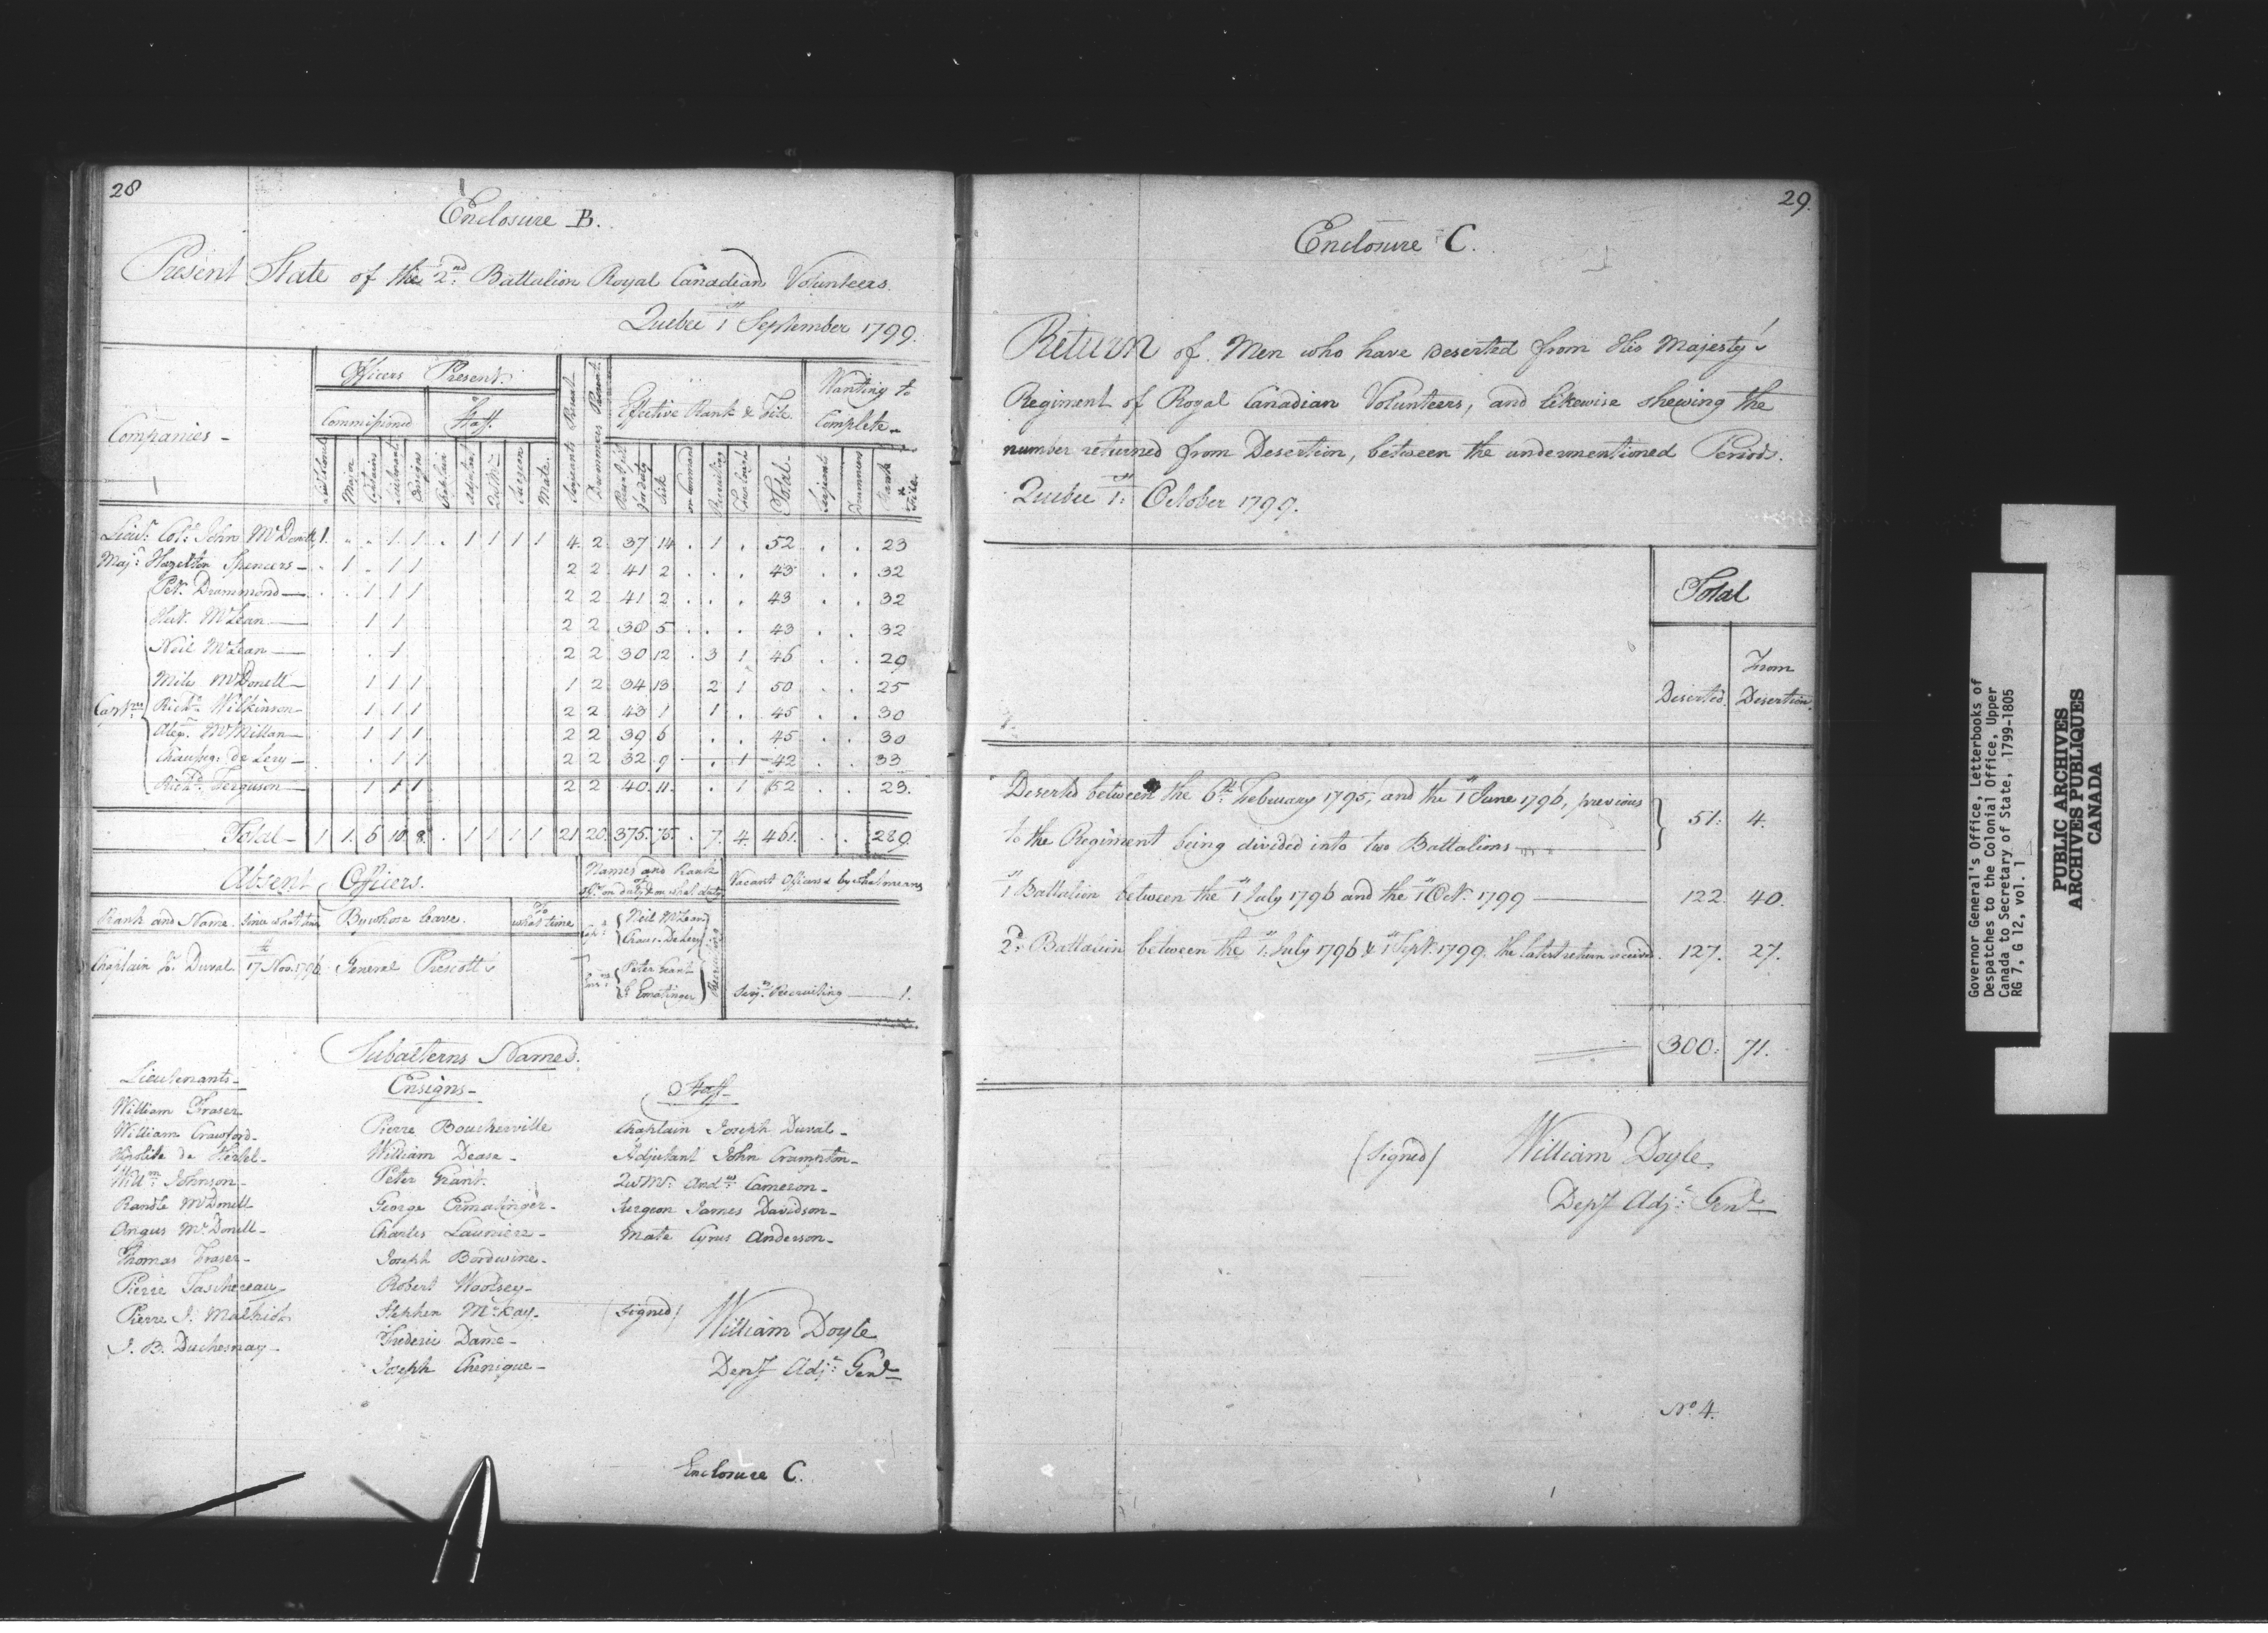 28
Enclosure B.
Present State of the 2nd Battalion Royal Canadian Volunteers.
Quebec 1st September 1799.
Companies - Officers Present. Serjeants Present Drummers Present Effective Rank & File Wanting to Complete
Commissioned Staff.
Major Captains Lieutenants Ensigns Chaplain Adjutant Qr. Mr. Surgeon Mate. Serjeants Drummers Present for duty Sick on Command Recruiting Furlough Total Serjeants Drummers Rank & File
Lieut. Col. John McDonell 1 . . 1 1 . 1 1 1 1 4 2 37 14 . 1 . 52 . . 23
Majr. Hazelton Spencers - . 1 . 1 1 2 2 41 2 . . . 43 . . 32
Petr. Drummond . . 1 1 1 2 2 41 2 . . . 43 . . 32
McLean 1 1 2 2 38 5 . . . 43 . . 32
Neil McLean . 1 2 2 30 12 . 3 1 46 . . 29
Miles McDonell 1 1 1 1 2 34 13 2 1 50 . . 25
Captns Richd. Wilkinson 1 1 1 2 2 43 1 1 . 45 . . 30
Alexr. McMillan 1 1 1 2 2 39 6 . . 45 . . 30
Chausseg. de Lery . 1 1 2 2 32 9 . 1 42 . . 33
Richd. Ferguson 1 1 1 2 2 40 11 . 1 52 . . 23.
Total 1 1. 6 10 8. . 1 1 1 1 21 20 375. 75. . 7. 4. 461. . . 289.
Absent Officers. Names and Rank of Do. on duty & on what duty Vacant Officers & by what means
Rank and Name. Since what time By whose leave. To what time
Capt. Neil McLean
Chaus. De Lery
Chaplain Js. Duval. 17th Nov. 1796 General Prescott's
Ens. Peter Grant
G Ermatinger
Serjts. Recruiting 1.
Subalterns Names.
Lieutenants - Ensigns - Staff -
William Fraser Pierre Boucherville Chaplain Joseph Duval -
William Crawford - William Dease - Adjutant John Crampton -
Hipolite de Hertel - Peter Grant. Qr Mr. Andw. Cameron -
Willm. Johnson - George Ermatinger - Surgeon James Davidson -
Randle McDonell Charles Launiere - Mate Cyrus Anderson -
Angus McDonell - Joseph Bordwine -
Thomas Fraser - Robert Woolsey -
Pierre Taschereau Stephen McKay -
Pierre I. Malhiot Frederic Dame -
J. B. Duchesnay - Joseph Chenique -
(Signed) William Doyle
Depy Adjt. Genl.
Enclosure C.
29.
Enclosure C.
Return of Men who have Deserted from His Majesty's
Regiment of Royal Canadian Volunteers, and likewise shewing the
number returned from Desertion, between the undermentioned Periods.
Quebec 1st. October 1799.
Total
Deserted. From Desertion.
Deserted between the 6th. February 1795, and the 1st June 1796, previous
to the Regiment being divided into two Battalions 51: 4.
1st Battalion between the 1st July 1796 and the 1st Octr. 1799 122. 40.
2d. Battalion between the 1st July 1796 & 1st Sept. 1799. the latest return received. 127. 27.
300: 71.
(Signed) William Doyle
Depy Adjt. Genl.
No. 4.
Governor General's Office, Letterbooks of
Despatches to the Colonial Office, Upper
Canada to Secretary of State, 1799-1805
RG 7, G 12, vol. 1
PUBLIC ARCHIVES
ARCHIVES PUBLIQUES
CANADA